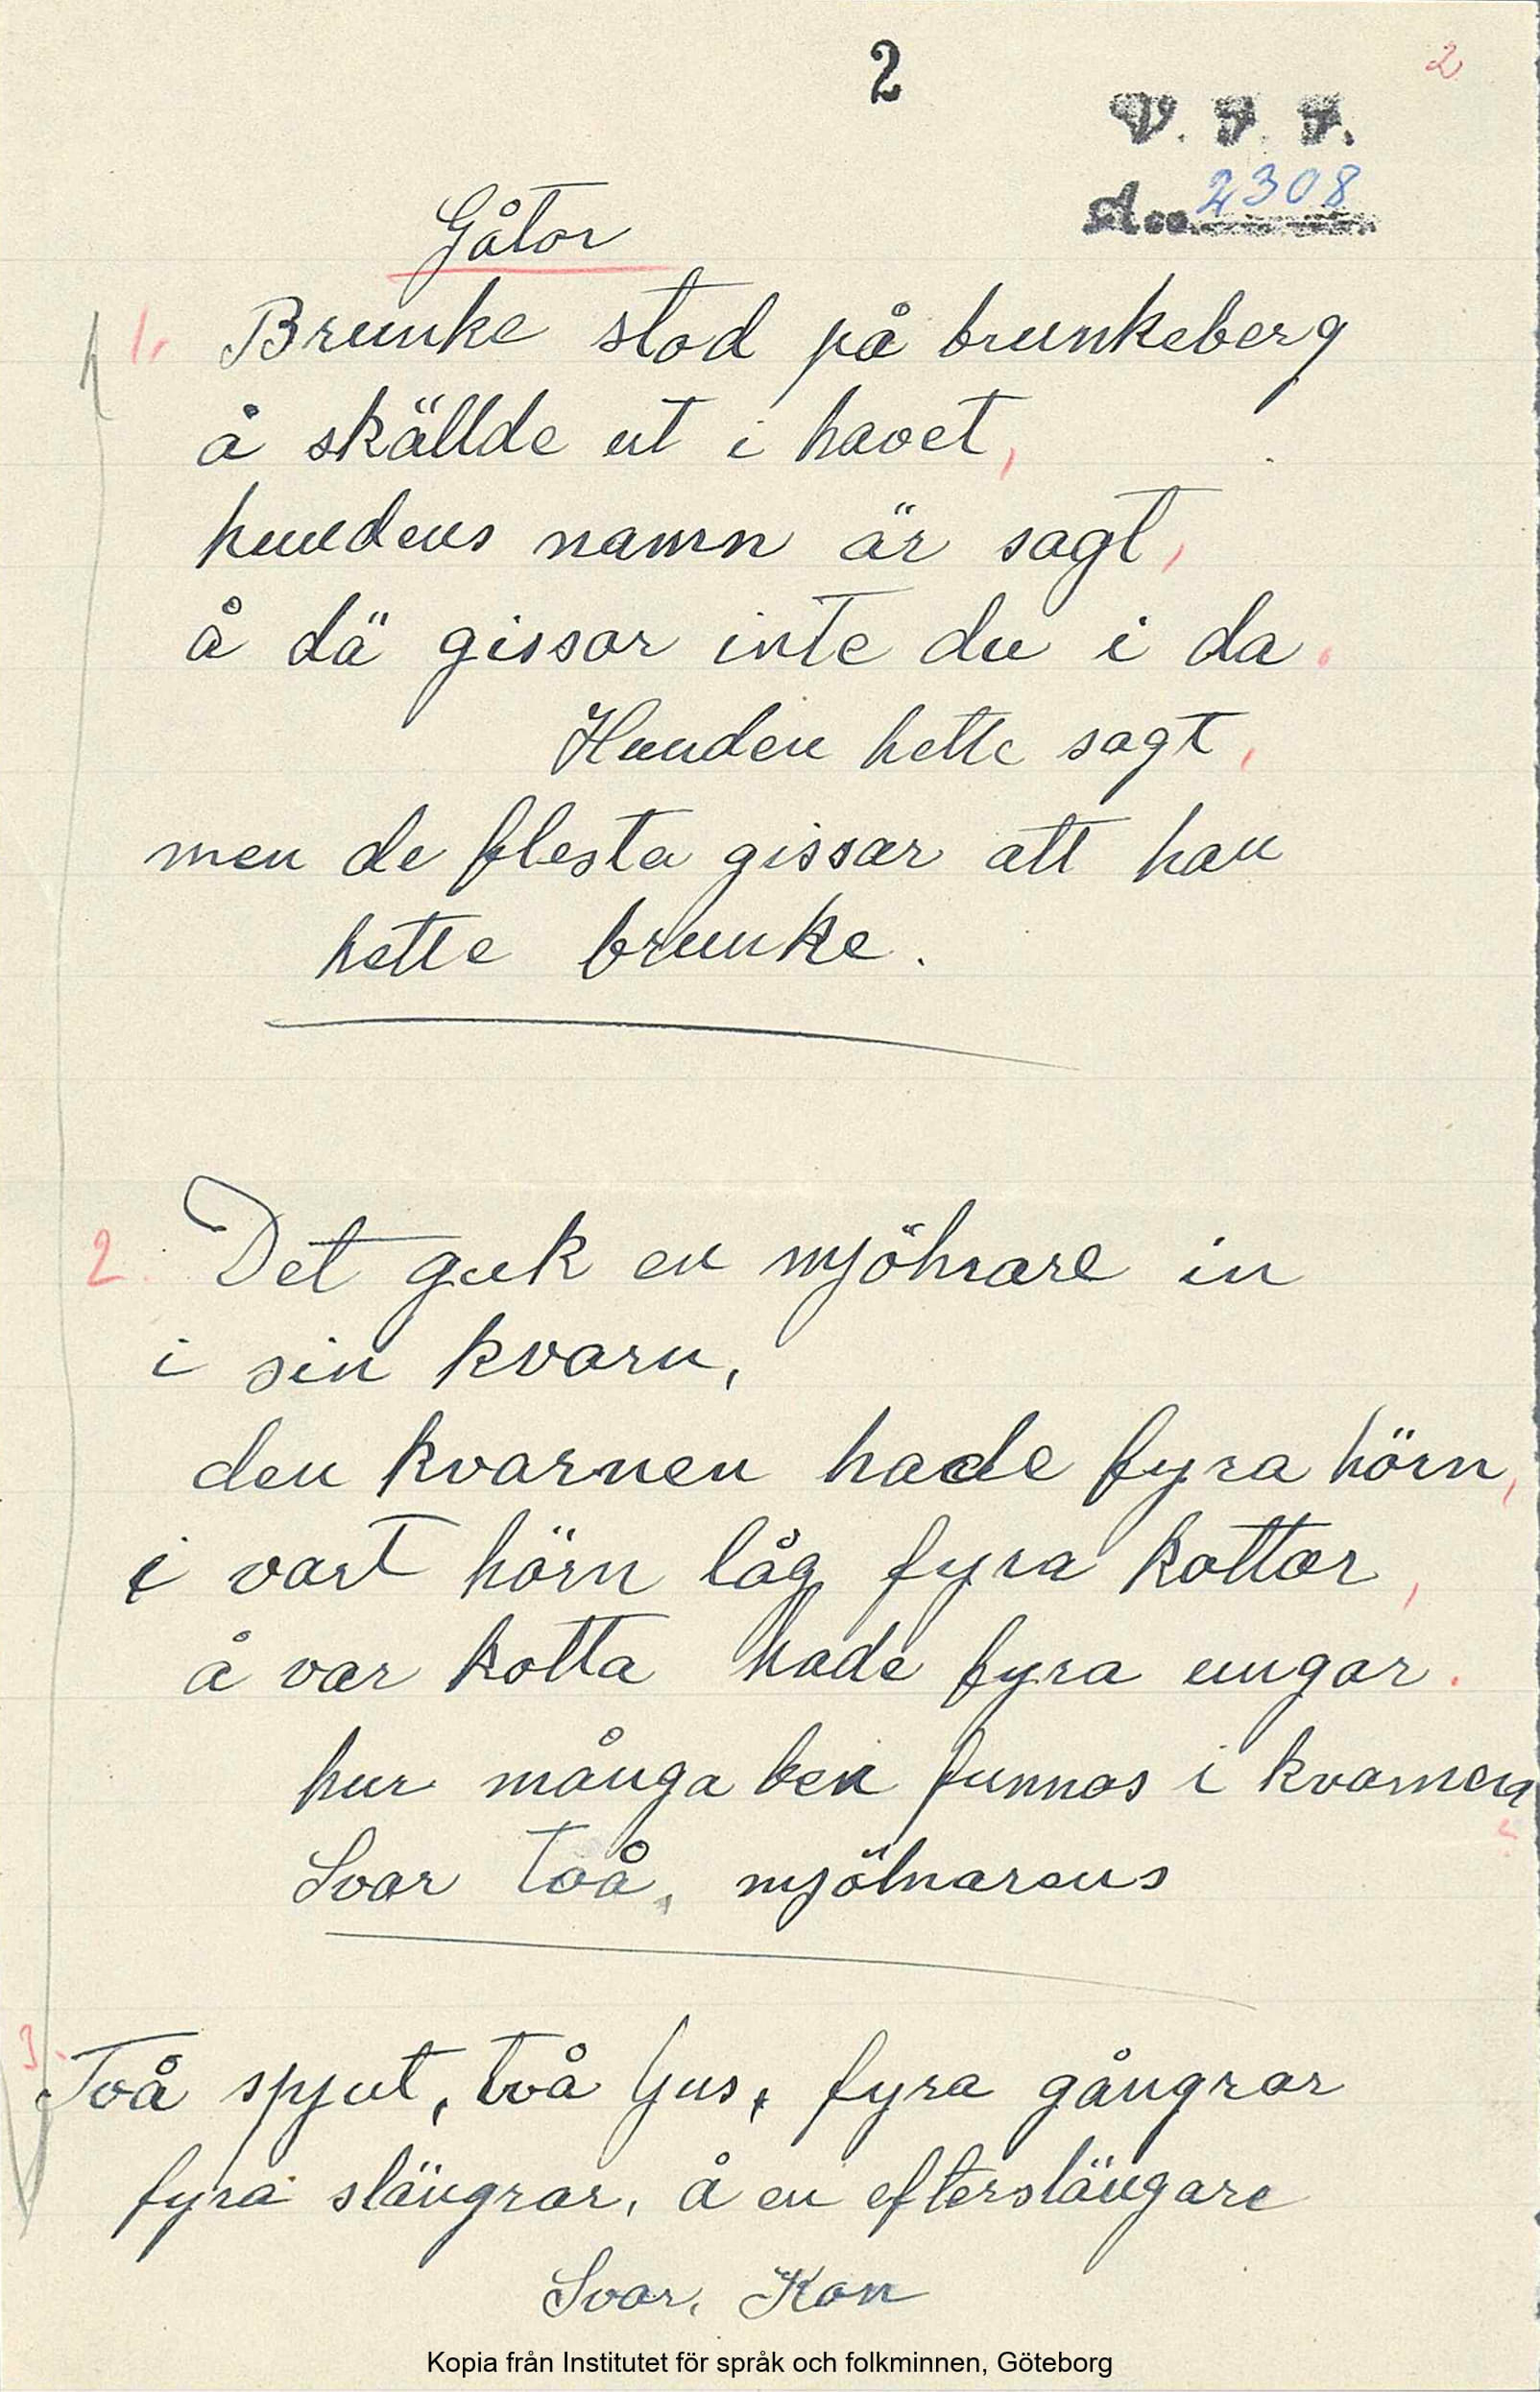 2
2
V. F. F.
Acc. 2308
Gåtor
1. Brunke stod på brunkeberg
å skällde ut i havet,
hundens namn är sagt,
å dä gissar inte du i da.
Hunden hette sagt,
men de flesta gissar att han
hette brunke.
2. Det gick en mjölnare in
i sin kvarn,
den kvarnen hade fyra hörn,
i vart hörn låg fyra kattor,
å var katta hade fyra ungar.
hur många ben funnos i kvarnen
?
Svar två, mjölnarens
3. Två spjut, två ljus, fyra gångrar
fyra slängrar, å en efterslängare
Svar. Kon
Kopia från Institutet för språk och folkminnen, Göteborg